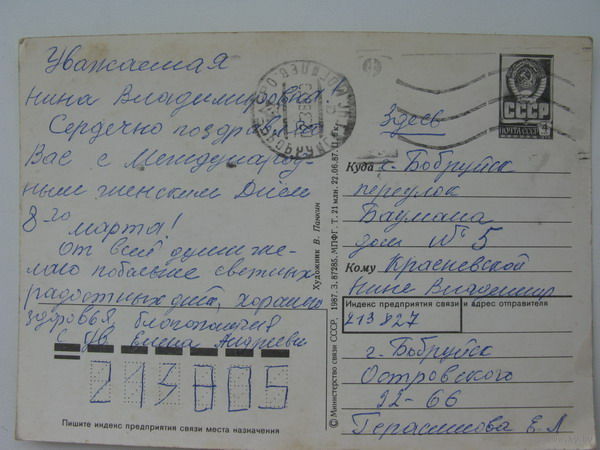 Уважаемая
Нина Владимировна!
Сердечно поздравляю
Вас с Международ-
ным женским Днем
8-го марта!
От всей души же-
лаю побольше светлых
радостных дней, хорошего
здоровья, благополучия
С ув. Елена Андреевн
213805
Пишите индекс предприятия связи места назначения
Художник В. Панкин
© Министерство связи СССР. 1987. З. 87285. МПФГ. Т. 21 млн. 22.06.87.
СССР
ПОЧТА СССР
Здесь
Куда г. Бобруйск
переулок
Баумана
дом № 5
Кому Красневской
Нине Владимир
Индекс предприятия связи и адрес отправителя
213827
г. Бобруйск
Островского
92-66
Герасимова Е.А